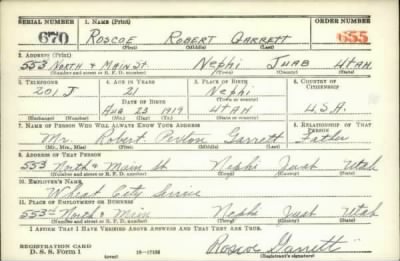 SERIAL NUMBER 1. NAME (Print) ORDER NUMBER
670 ROSCOE ROBERT GARRETT 655
(First) (Middle) (Last)
2. ADDRESS (Print)
553 NORTH & MAIN ST NEPHI JUAB UTAH
(Number and street or R. F. D. number) (Town) (County) (State)
3. TELEPHONE 4. AGE IN YEARS 5. PLACE OF BIRTH 6. COUNTRY OF CITIZENSHIP
201 J 21 Nephi
DATE OF BIRTH (Town or county)
Aug 23 1919 UTAH U.S.A.
(Exchange) (Number) (Mo.) (Day) (Yr.) (State or country)
7. NAME OF PERSON WHO WILL ALWAYS KNOW YOUR ADDRESS 8. RELATIONSHIP OF THAT PERSON
Mr. Robert Garrett Father
(Mr., Mrs., Miss) (First) (Middle) (Last)
9. ADDRESS OF THAT PERSON
553 North & Main St Nephi Juab Utah
(Number and street or R. F. D. number) (Town) (County) (State)
10. EMPLOYER'S NAME
City
11. PLACE OF EMPLOYMENT OR BUSINESS
North & Main Nephi Juab Utah
(Number and street or R. F. D. number) (Town) (County) (State)
I AFFIRM THAT I HAVE VERIFIED ABOVE ANSWERS AND THAT THEY ARE TRUE.
REGISTRATION CARD
D. S. S. FORM 1 (over) Roscoe Garrett
(Registrant's signature)